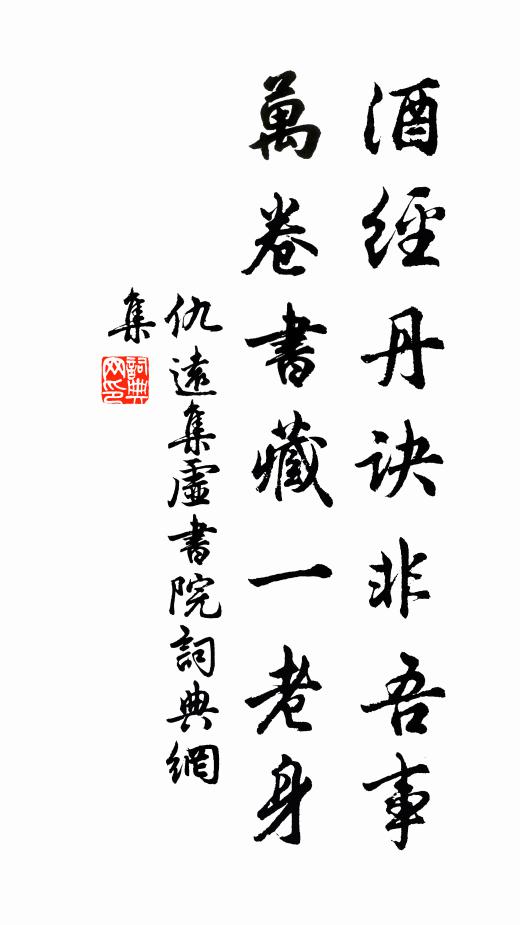 酒經丹訣非吾事
萬卷書藏一老身
仇遠集虛書院詞典網
集
詞典网印